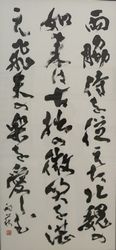 両脇侍を従えた北魏の
如来は古拙の微笑を湛
え飛天の楽を愛し